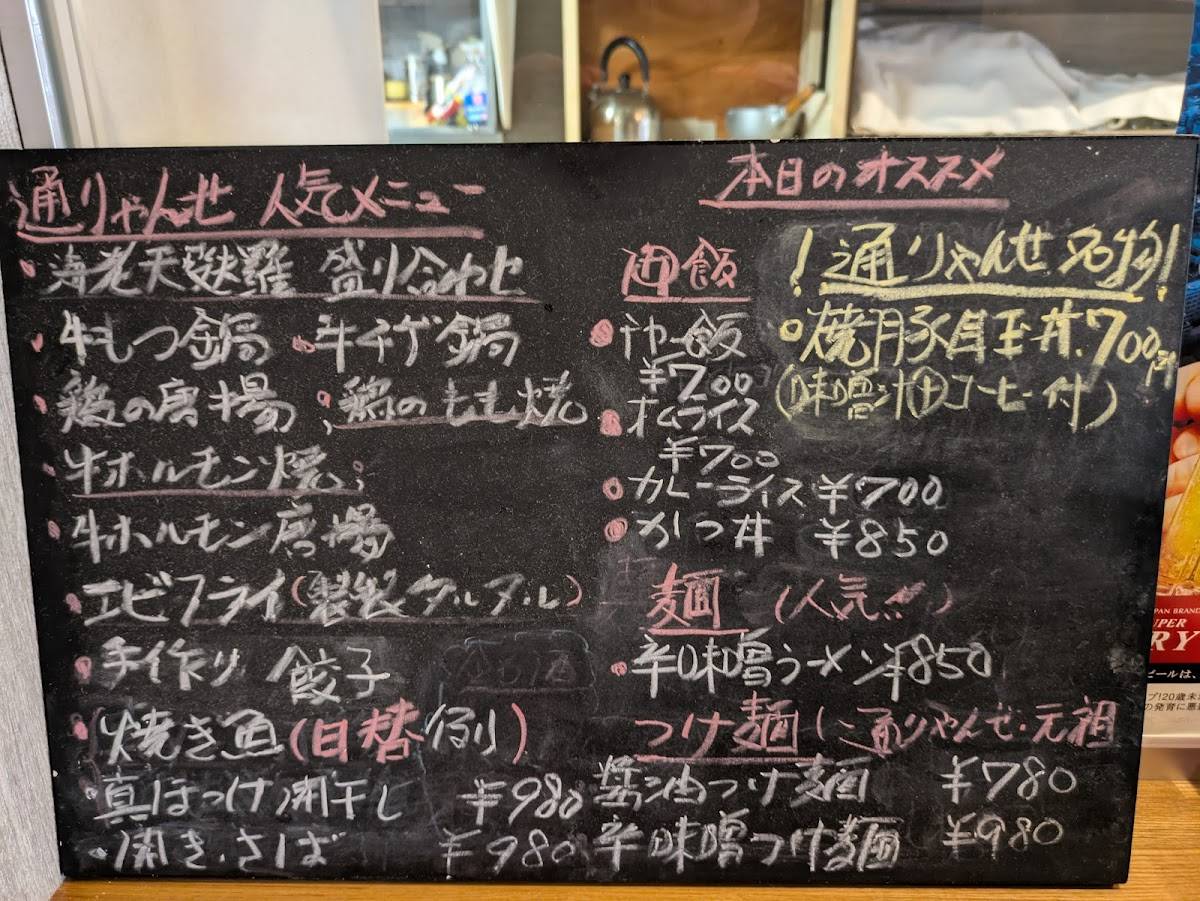 通りゃんせ 人気メニュー
海老天麩羅 盛り合わせ
牛もつ鍋 牛チゲ鍋
鶏の唐揚 鶏のもも焼
牛ホルモン焼
牛ホルモン唐揚
エビフライ(製製タルタル)
手作り 餃子
焼き魚(日替 例)
真ほっけ開干し ¥980
開き・さば ¥980
本日のオススメ
飯
飯
¥700
オムライス
¥700
カレーライス ¥700
かつ丼 ¥850
麺 (人気!!)
辛味噌ラーメン ¥850
つけ麺(通りゃんせ・元祖
醤油つけ麺 ¥780
辛味噌つけ麺 ¥980
!通りゃんせ名物!
焼豚目玉丼.700円
(味噌汁⊕コーヒー付)
PAN BRAND
UPER
RY
ビールは、
プ!20歳未
の発育に悪